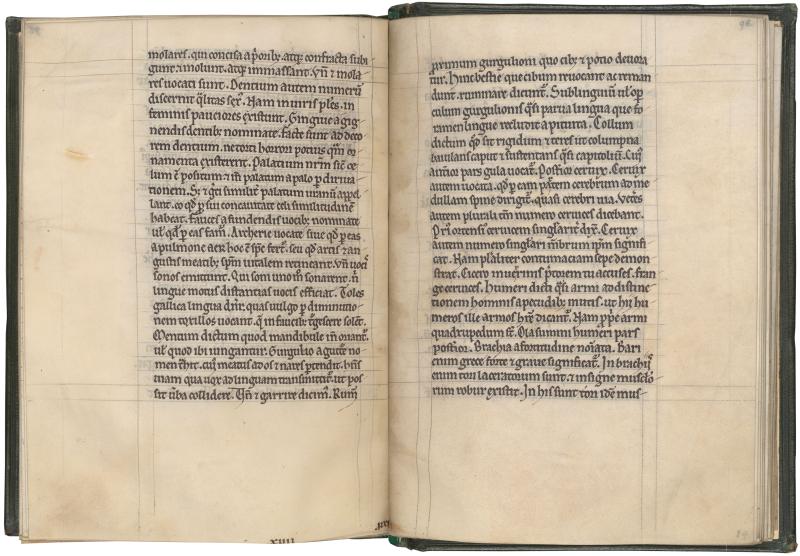 molares. qui concisa a p̄orib; atq; confracta subi
gunt. ⁊ molunt. atq; inmassant. Vñ ⁊ mola
res uocati sunt. Dentium autem numerū
discernit q̄litas sex᷒. Nam in uiris ples. in
feminis pauciores existunt. Gingiue a gig
nendis dentib; nominate. Facte sunt ad deco
rem dentium. ne tori horrori potius q̄m or
namenta existerent. Palatum nr̄m sic̄ ce
lum ē positum. ⁊ in̄ palatum a polo p diriua
tionem. S; ⁊ g̃ci similit̃ palatum uranū appel
lant. eo qd̄ p sui concauitate celi similitudinē
habeat. Fauces a fundendis uocib; nominate
ul̓ qd̄ p eas fam̃. Arterie uocate siue qd̄ p eas
a pulmone aer hoc ē sp̄c fert̃. seu qd̄ artis ⁊ an
gustis meatib; sp̄m uitalem retineant. vñ uocū
sonos emittunt. Qui soni uno m̊ sonarent. ñ
lingue motus distantias uocis efficiat. Toles
gallica lingua dn̄r. quas uulgo p diminutio
nem toxillos uocant. q̄ in faucib; t̃gescere solēt.
Mentum dictum quod mandibule inde oriant̃.
ul̓ quod ibi iungantur. Gurgulio a gutt̃e no
men t̃hit. cuī meatus ad os ⁊ nares p̄tendit. hñs
uiam qua uox ad linguam transmittit̃. ut pos
sit ūba collidere. Vñ ⁊ garrire dicim᷒. Rum
xiiii
primum gurgulioni quo cib; ⁊ potio deuora
tur. Hinc bestie que cibum reuocant ac reman
dunt. ruminare dicunt̃. Sublinguiū ul̓ op̃
culum gurgulionis q̄si parua lingua que fo
ramen lingue recludit a pituita. Collum
dictum qd̄ sit rigidum ⁊ teres ut columpna
baiulans caput ⁊ sustentans q̄si capitoliū. Cuī
ant̃ior pars gula uocat̃. Post̃ior ceruix. Ceruix
autem uocata. qd̄ p eam p̄tem cerebrum ad me
dullam spine dirigit̃. quasi cerebri uia. Vet̃es
autem plurali tm̄ numero ceruices dicebant.
Pri ortensi᷒ ceruicem singularit̃ dix̃. Ceruix
autem numero singlari m̄brum ip̄m signifi
cat. Nam plalit̃ contumaciam sepe demon
strat. Cicero in uerrinis p̄torem tu accuses. fran
ge ceruices. Humeri dicti q̄si armi ad distinc
tionem hominis a pecudib; mutis. ut hii hu
meros ille armos hr̄e dicant̃. Nam p̄pe armi
quadrupedum st̄. Ola summi hum̃i pars
post̃ior. Brachia a fortitudine noīata. Bari
enim grece forte ⁊ graue significat̃. In brachiis
enim tori lacertorum sunt. ⁊ insigne musclo
rum robur existit. In his sunt tori idē mus-